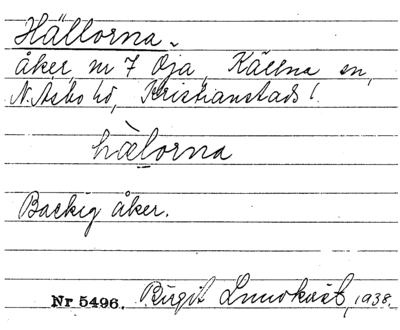 Hällorna.
åker, nr 7 Öja, Källna sn,
N. Åsbo hd, Kristianstads l.
hælorna
Backig åker.
Nr 5496. Birgit Lundkvist, 1938.